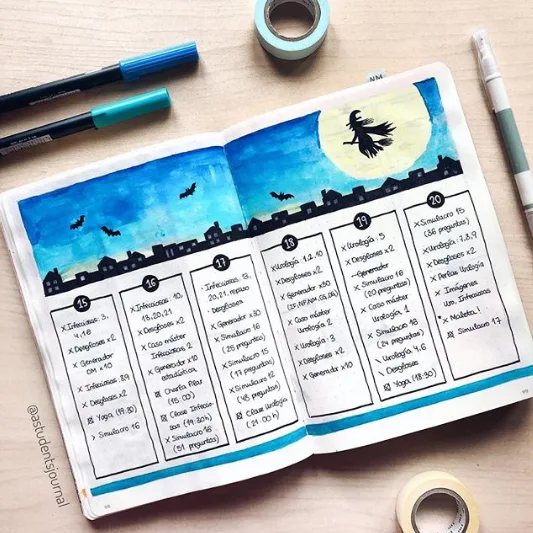 @astudentsjournal
15
x Infecciosas: 3,
4, 18
x Desgloses x2
x Generador
DM x10
x Infecciosas: 8,9
x Desgloses x2
Yoga (19:30)
> Simulacro 16
16
x Infecciosas: 10,
18, 20, 21
x Desgloses x2
x Caso máster
Infecciosas 2
x Generador x10
estadística
Charla Pilar
(15:00)
Clase Infeccio-
sas (19:30h)
x Simulacro 16
(51 preguntas)
17
Infecciosas: 13,
20, 21, repaso
Desgloses
x Generador x30
x Simulacro 16
(25 preguntas)
x Simulacro 15
(17 preguntas)
x Simulacro 12
(45 preguntas)
Clase Urología
(21:00 h)
18
x Urología: 1, 2, 10
x Desgloses x2
x Generador x30
x Caso máster
Urología 2
x Urología: 3
x Desgloses x2
x Generador x10
19
x Urología: 5
x Desgloses x2
Generador
x Simulacro 16
(20 preguntas)
x Caso máster
Urología 1
x Simulacro 18
(24 preguntas)
\ Urología 4, 6
\ Desgloses
Yoga (18:30)
20
x Simulacro 15
(36 preguntas)
x Urología: 7, 8, 9
x Desgloses x2
x Perlas Urología
x Imágenes
Infecciosas
x Maleta!
Simulacro 17